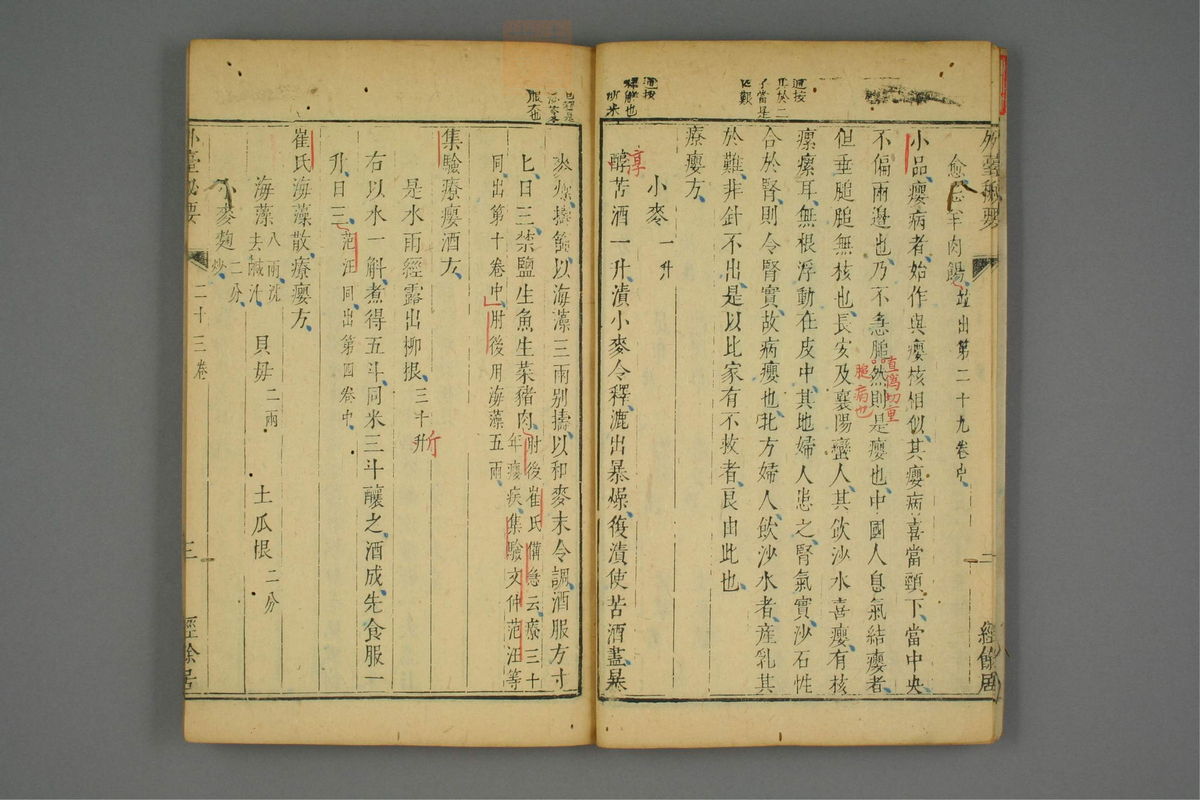 外臺秘要
愈忌羊肉餳並出第二十九卷中
小品瘿病者始作與瘿核相似其瘿病喜當頸下當中央
不偏兩邊也乃不急膇然則是瘿也中國人息氣結瘿者
但垂膇膇無核也長安及襄陽蠻人其飲沙水喜瘿有核
瘰瘰耳無根浮動在皮中其地婦人患之腎氣實沙石性
合於腎則令腎實故病瘿也北方婦人飲沙水者產乳其
於難非針不出是以比家有不救者良由此也
療瘿方
小麥一升
醇苦酒一升漬小麥令釋漉出暴燥復漬使苦酒盡暴
二
經餘居
直偽切重
膇病也
淳
麥燥擣篩以海藻三兩別擣以和麥末令調酒服方寸
匕日三禁鹽生魚生菜豬肉肘後崔氏備急云療三十
年瘿疾集驗文仲范汪等
同出第十卷中肘後用海藻五兩
集驗療瘿酒方
是水雨經露出柳根三十升
斤
右以水一斛煮得五斗同米三斗釀之酒成先食服一
升日三范汪同出第四卷中
崔氏海藻散療瘿方
海藻八兩洗去鹹汁 貝母二兩 土瓜根二分
小麥麴二分炒
外臺秘要
二十三卷
三
經餘居